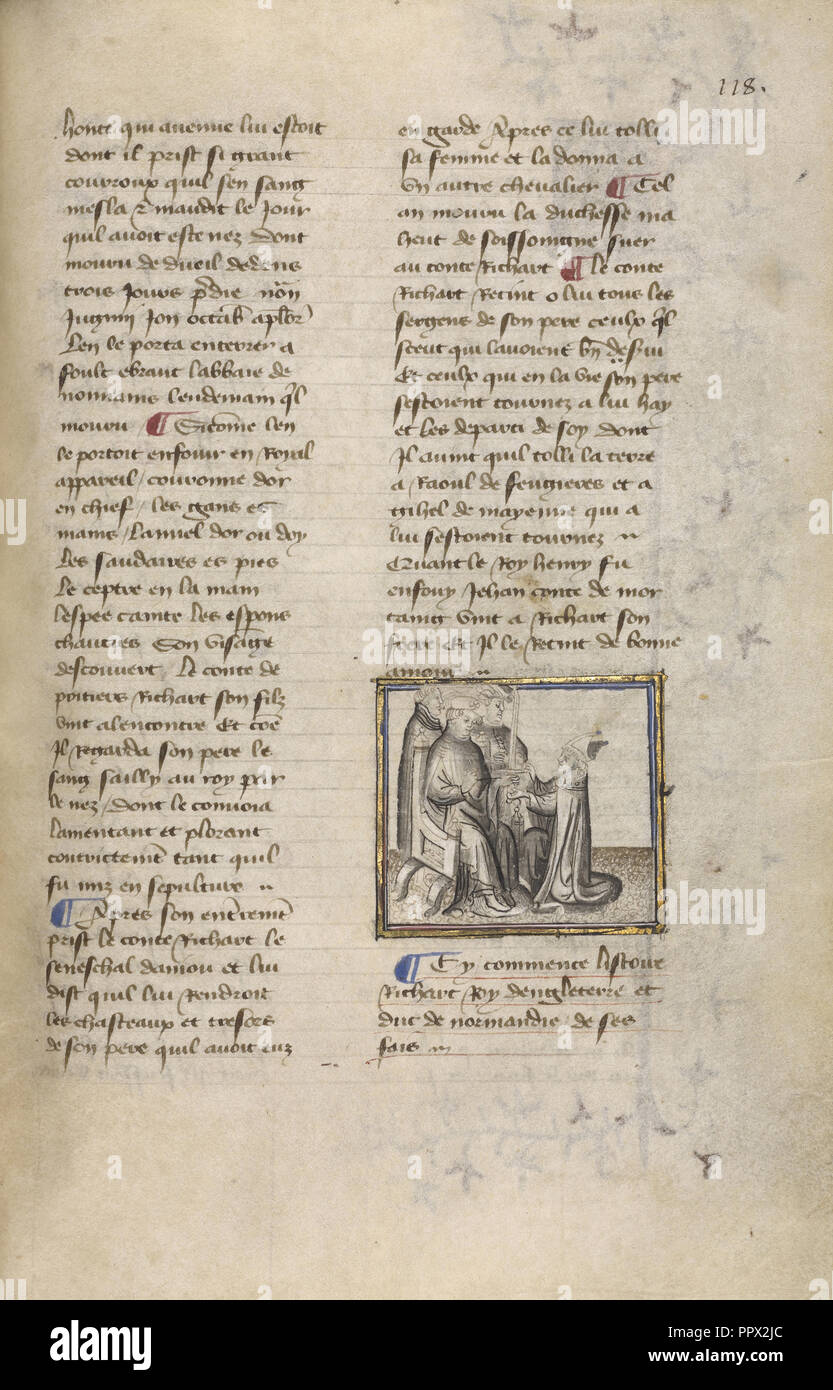 118.
honte qui auenue lui estoit
dont il prist si grant
courroux quil sen sang
mesla & maudit le Jour
quil auoit este nez Dont
mouru de dueil dedens
trois Jours
Len le porta enterrer a
foult ebraut labbaie de
nonnains lendemain ql
mouru ¶ Sicome len
le portoit enfouir en Royal
appareil / couronne dor
en chief / les gans es
mains / Lannel dor ou doy
Les saudaires es pies
Le ceptre en la main
lespee cainte les espons
chauciés Son visage
descouuert Le conte de
poitiers Richart son filz
vint alencontre Et coe
Il Regarda son pere le
sang sailly au roy par
le nez / dont le conuoia
lamentant et plorant
tant quil
fu mis en sepulture
¶ Apres son
prist le conte Richart le
seneschal daniou et lui
dist quil lui Rendroit
les chasteaux et tresors
de son pere quil auoit euz
en garde Apres ce lui tolli
sa femme et la donna a
vn autre cheualier ¶ Cel
an mouru la duchesse ma
heut de seur
au conte Richart ¶ Le conte
Richart Retint o lui tous les
sergens de son pere ceulx ql
sceut qui lauoient bn
Et ceulx qui en la vie son pere
sestoient tournez a lui hay
et les departi de soy dont
Il auint quil tolli la terre
a Raoul de feugieres et a
gihel de mayenne qui a
lui sestoient tournez
Quant le Roy henry fu
enfouy Jehan conte de mor
taing vint a Richart son
frere Et Il le Retint de bonne
amour
¶ Cy commence listoire
Richart Roy dengleterre et
duc de normandie de ses
fais
alamy
Image ID: PPX2JC
www.alamy.com